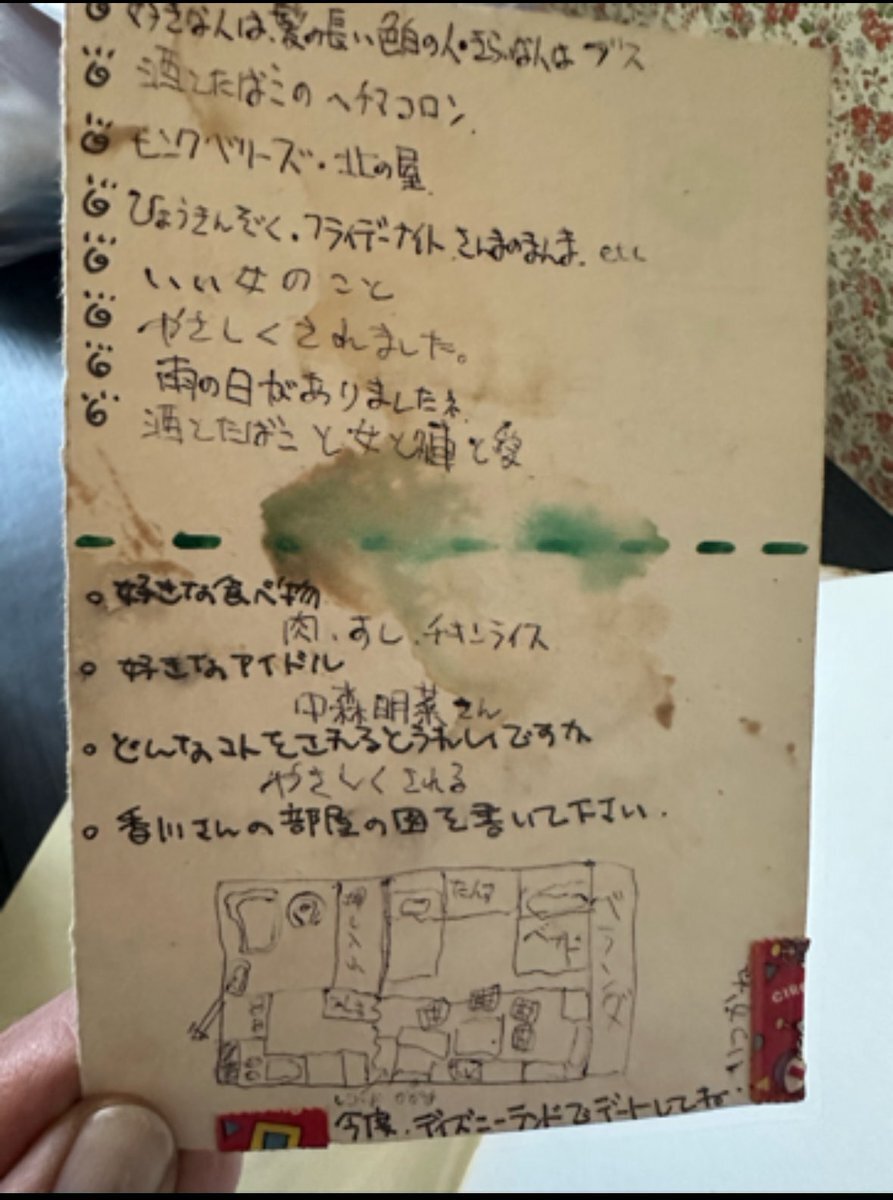 好きな人は、髪の長い色白の人・きらいな人はブス
酒とたばこのヘチマコロン
モンクベリーズ・北の屋
ひょうきんぞく・フライデーナイト、さんまのまんま、etc
いい女のこと
やさしくされました。
雨の日がありましたネ
酒とたばこと女と
と愛
○ 好きな食べ物
肉、すし、チキンライス
○ 好きなアイドル
中森明菜さん
○ どんなコトをされるとうれしイですか
やさしくされる
○ 香川さんの部屋の図を書いて下さい.
たんす
押し入れ
ベッド
ベランダ
今度、ディズニーランドでデートしてネ.
CIR